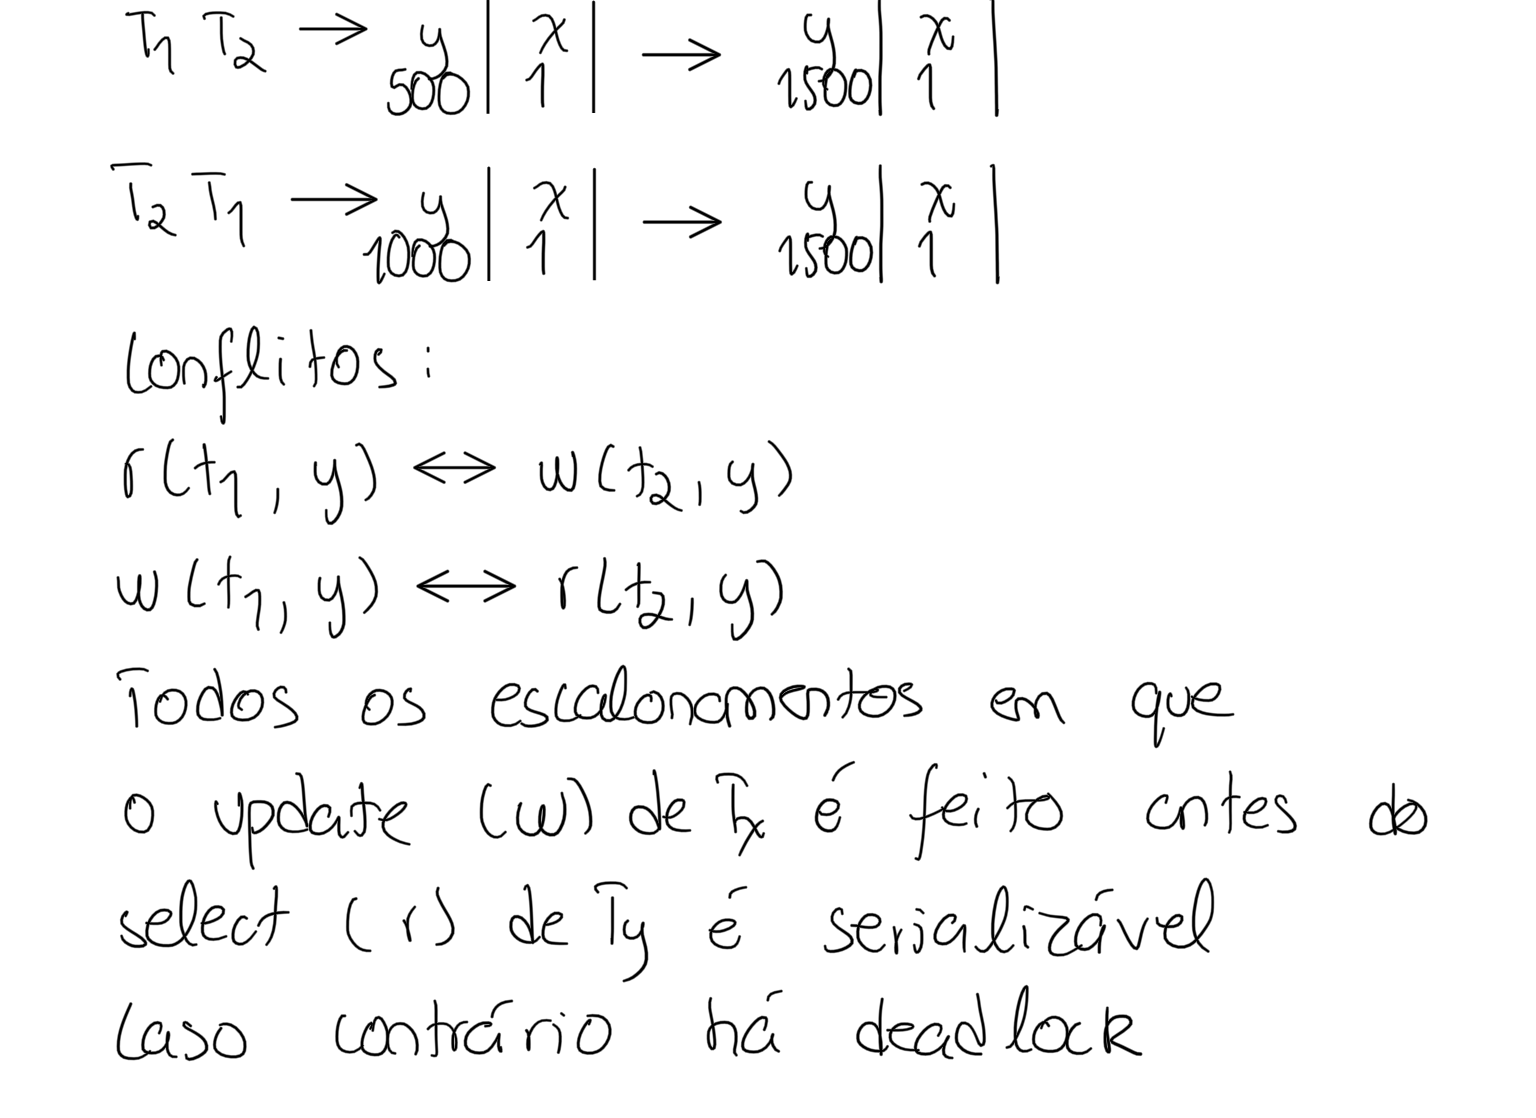 T1 T2 → y | x | → y | x |
500 | 1 | 1500 | 1 |
T2 T1 → y | x | → y | x |
1000 | 1 | 1500 | 1 |
Conflitos:
r(t1, y) ↔ w(t2, y)
w(t1, y) ↔ r(t2, y)
Todos os escalonamentos em que
o update (w) de Tx é feito antes do
select (r) de Ty é serializável
Caso contrário há deadlock